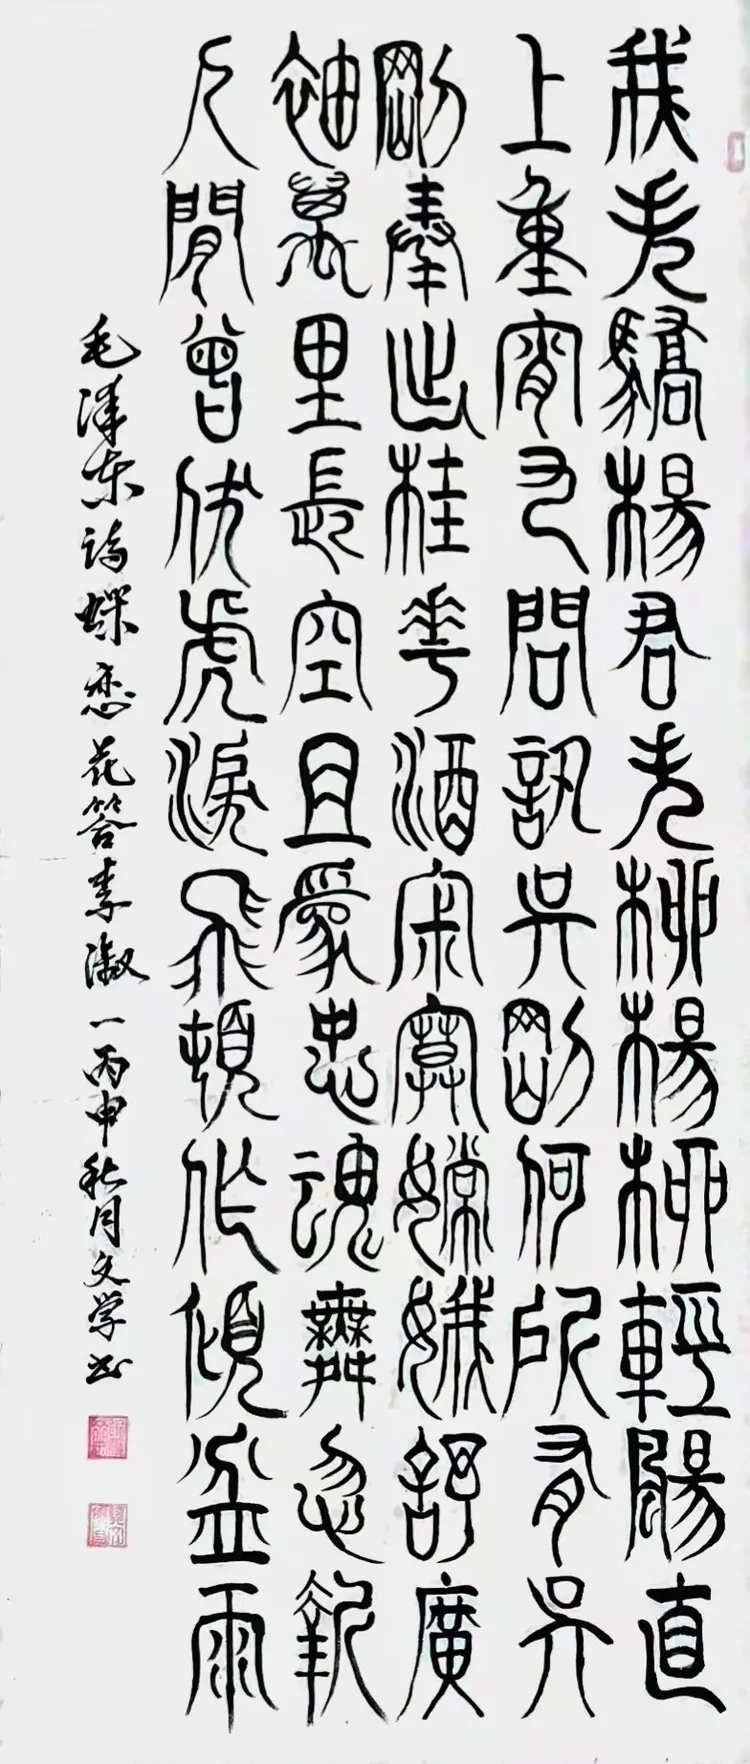 我失驕楊君失柳楊柳輕颺直
上重宵九問訊吳剛何所有吳
剛奉出桂華酒寂寞嫦娥舒廣
袖萬里長空且爲忠魂舞忽報
人間曾伏虎淚飛頓作傾盆雨
毛泽东诗蝶恋花答李淑一丙申秋月文学书